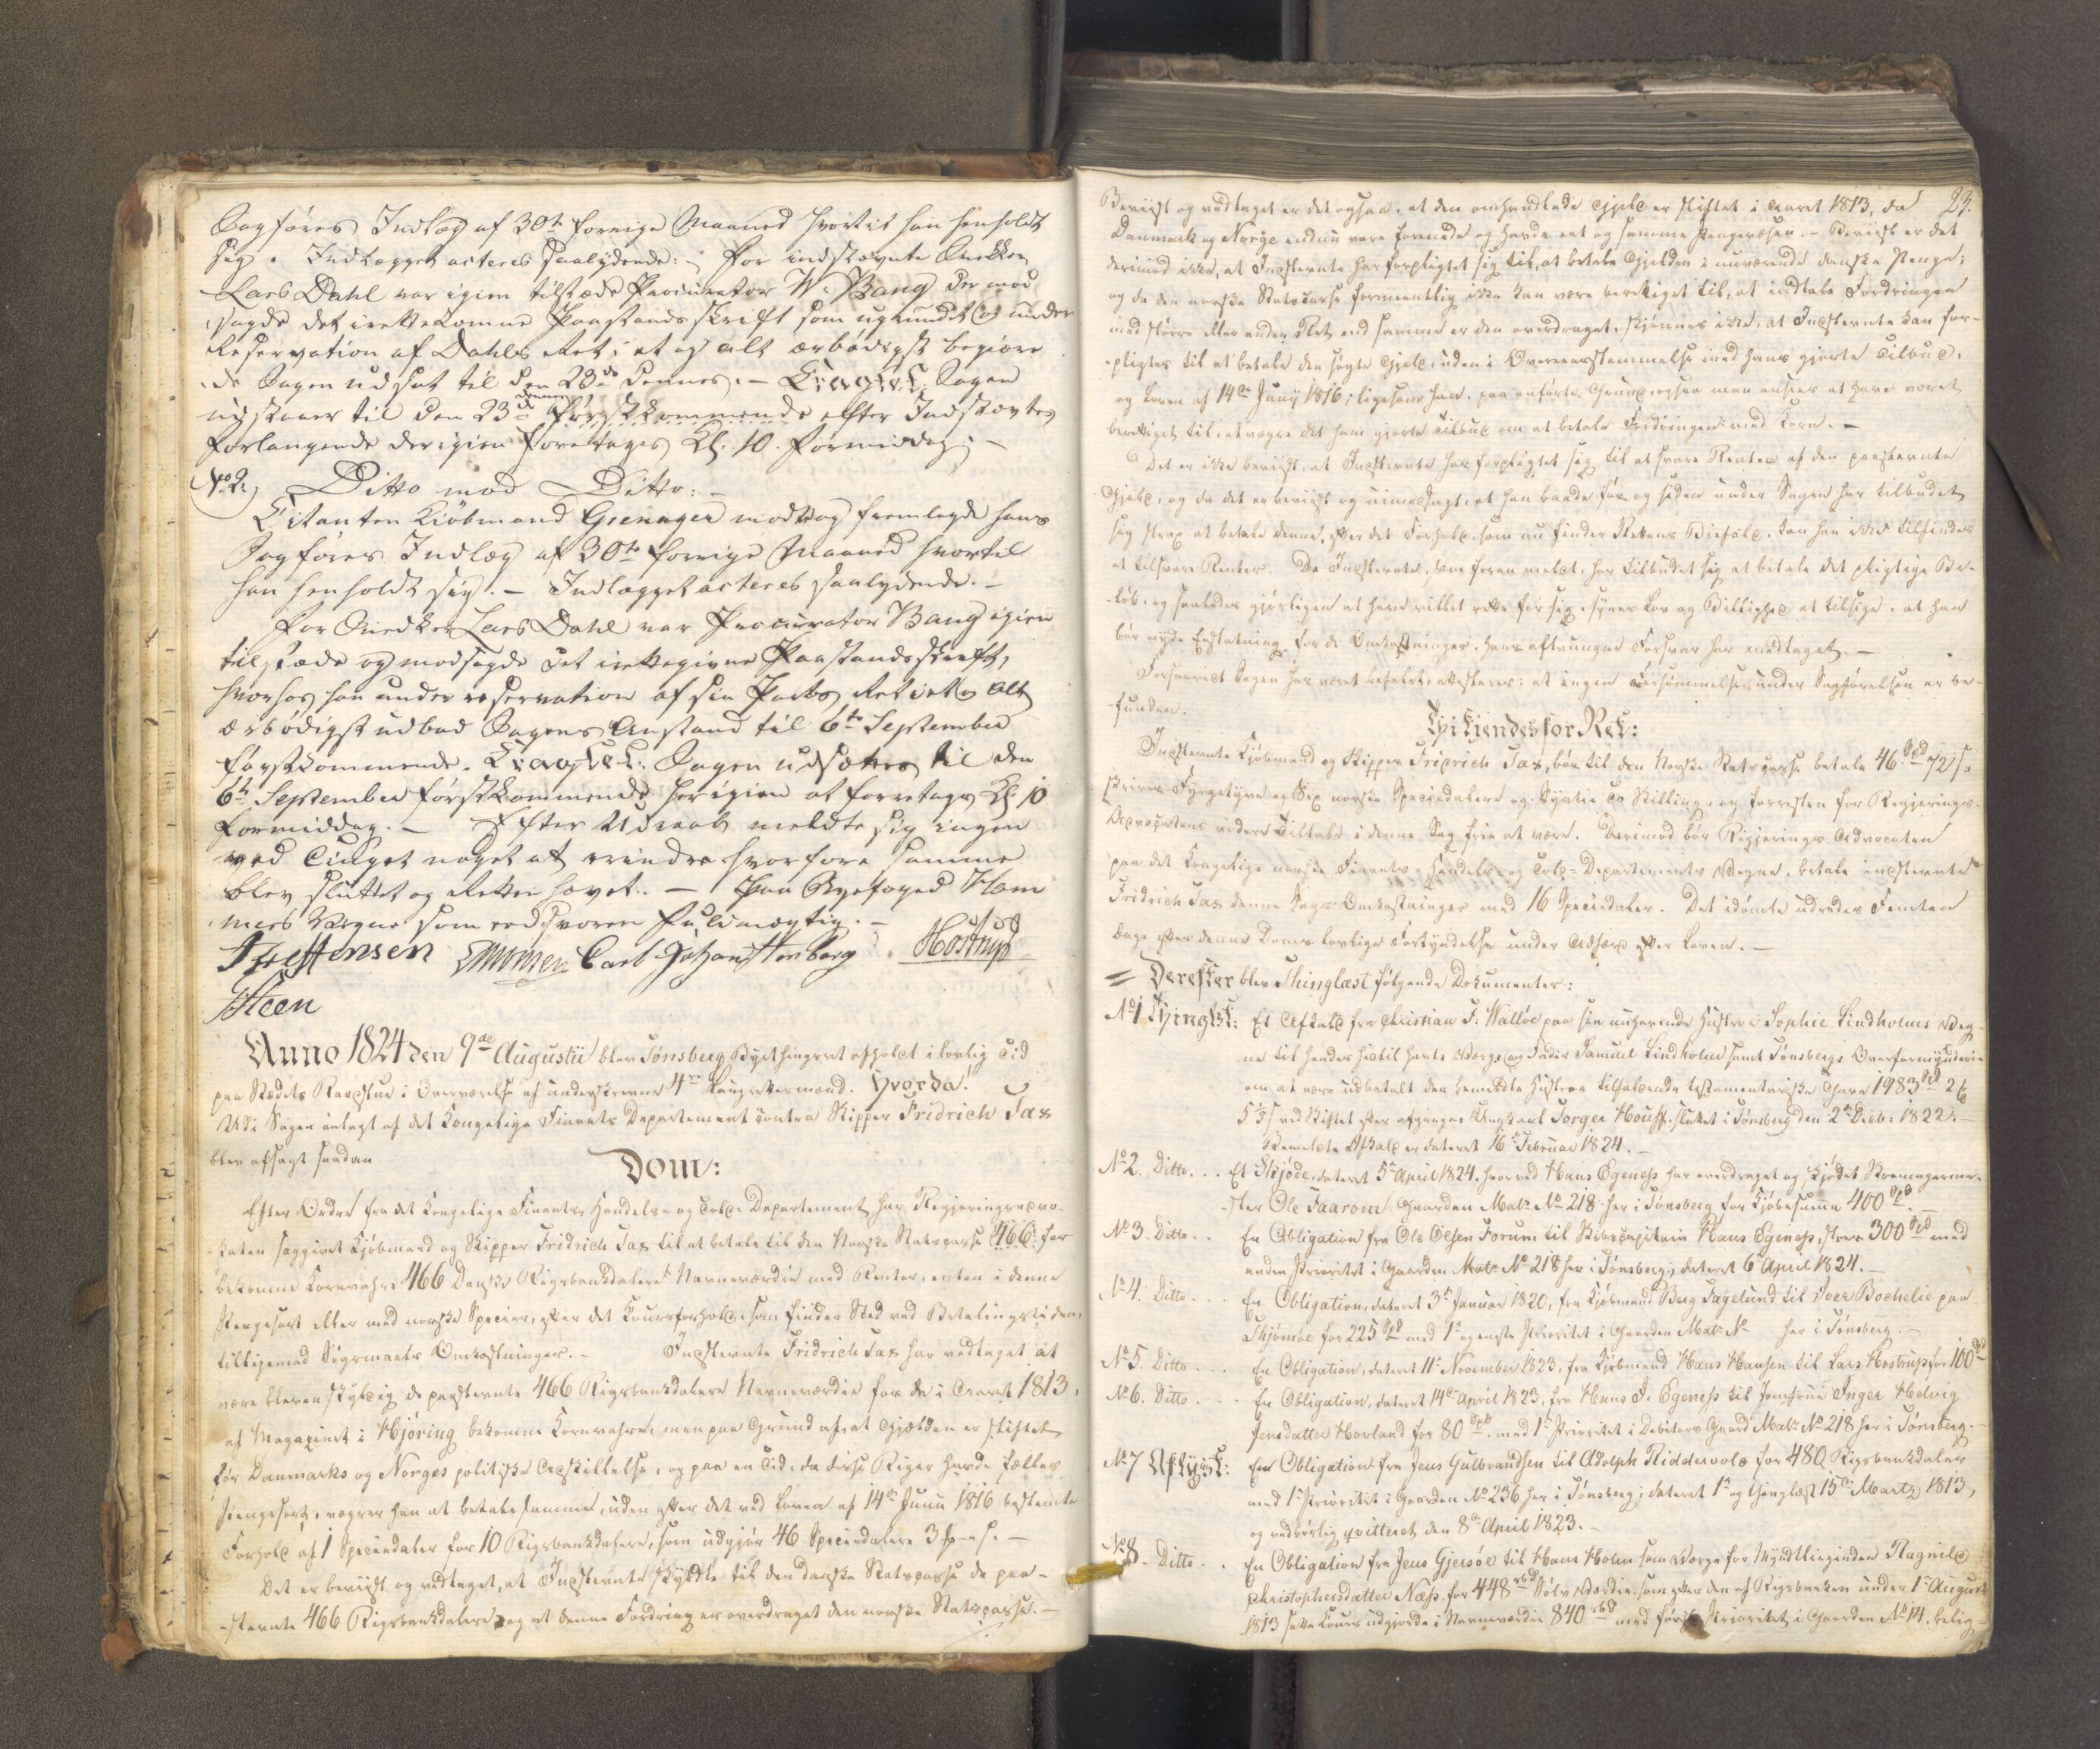 Sagføres Indlæg af 30te forrige Maaned hvortil han henholdt
sig. Indlægget acteres saalydende: - For indstævnte Snedker
Lars Dahl var igien tilstæde Procurator W. Bang der mod
sagde det irettekomne Paastands skrift som ugrundet og under
Reservation af Dahls Ret i et og alt ærbødigst begiære
de Sagen udsat til den 23de dennes. - Eragtet. Sagen
udstaaer til den 23de dennes efter Indstævntes
forlangende der igien foretages Kl: 10 formiddag. -
No 2. Ditto mod Ditto: -
Citanten Kiöbmand Grenager modtog fremlagde hans
Sagføres Indlæg af 30te forrige Maaned hvortil
han henholdt sig. - Indlægget acteres saalydende. -
For Snedker Lars Dahl var Procurator Bang igien
tilstæde og modsagde det irettegivne Paastandsskrift,
hvorhos han under reservation af sin Parts Ret i et og Alt
ærbødigst udbad Sagens Anstand til 6te September
førstkommende. Eragtet. Sagen udsættes til den
6te September førstkommende her igien at foretages Kl. 10
formiddag. - Efter Udraab meldte sig ingen
ved Tinget noget at erindre hvorfore samme
blev sluttet og Retten hævet. - Paa Byefoged Ham
mers Vegne som eedsvoren fuldmægtig. -
Steffensen Carl Johan Stenborg Hostrup
Steen
Anno 1824 den 9de Augustii blev Tønsberg Byethingsret afholdt i lovlig Tid
paa Stædets Raadstue i Overværelse af underskrevne 4re Laugrettesmænd. Hvorda!
Udi Sagen anlagt af det Kongelige Finants Departement contra Skipper Fridrich Sax
blev afsagt saadan
Dom:
Efter Ordre fra det Kongelige Finants, Handels- og Told-Departement har Regjeringsadvo-
-katen sagsøgt Kjøbmand og Skipper Fridrich Sax til at betale til den Norske Statscasse 466 for
bekomne Kornvahre 466 Danske Rigsbankdalere Navneværdie med Renter, enten i denne
Pengesort eller med norske Specier, efter det Coursforhold, som finder Sted ved Betalingstiden,
tilligemed Søgsmaalets Omkostninger. - Indstevnte Fridrich Sax har vedtaget at
være bleven skyldig de paastevnte 466 Rigsbankdalere Navneværdie for de i Aaret 1813,
af Magazinet i Hjøring bekomne Kornvahre, men paa Grund af at Gjælden er stiftet
før Danmarks og Norges politiske Adskillelse, og paa en Tid, da disse Riger havde fælles
Pengesort, vægrer han at betale samme, uden efter det ved Loven af 14de Junii 1816 bestemte
Forhold af 1 Speciedaler for 10 Rigsbankdalere, som udgjør 46 Speciedalere 3 - s. -
Det er beviist og vedtaget, at Indstevnte skyldte til den danske Statscasse de paa-
-stevnte 466 Rigsbankdalere og at denne Fordring er overdraget den norske Statscasse. -
23.
Beviist og vedtaget er det ogsaa, at den omhandlede Gjeld er stiftet i Aaret 1813, da
Danmark og Norge endnu vare forenede og havde eet og samme Pengevæsen. - Beviist er det
derimod ikke, at Indstevnte har forpligtet sig til, at betale Gjelden i nuværende danske Penge;
og da den norske Statscasse formeentlig ikke kan være berettiget til, at indtale Fordringen
med større eller anden Ret, end samme er den overdraget, skjønnes ikke, at Indstevnte kan for-
-pligtes til at betale den søgte Gjeld, uden i Overeensstemmelse med hans gjorte Tilbud,
og Loven af 14de Junij 1816; ligesom han, paa anførte Grund, ogsaa maa ansees at have været
berettiget til, at vægre det ham gjorte Tilbud om at betale Fordringen med Korn. -
Det er ikke beviist, at Indstevnte har forpligtet sig til at svare Renter af den paastevnte
Gjeld, og da det er beviist og uimodsagt, at han baade før og siden under Sagen har tilbudet
sig strax at betale denne, efter det Forhold, som nu finder Rettens Biefald, kan han ikke tilfindes
at tilsvare Renter. Da Indstevnte, som foran meldt, har tilbudet sig at betale det pligtige Be-
-løb, og saaledes gjørligen at have villet rette for sig, synes Lov og Billighed at tilsige, at han
bør nyde Erstatning for de Omkostninger, hans aftvungne Forsvar har medtaget. -
Forsaavidt Sagen har været befalet attesteres: at ingen Forsømmelse under Sagførelsen er be-
-funden.
Thi Kjendes for Ret:
Indstevnte Kjøbmand og Skipper Fridrich Sax, bør til den Norske Statscasse betale 46 Spd 72 s.
skriver Fyrgetyve og Sex norske Speciedalere og Sytti to Skilling, og forresten for Regjerings-
Advocatens videre Tiltale i denne Sag frie at være. Derimod bør Regjerings Advocaten
paa det Kongelige norske Finants- Handels- og Told-Departements Vegne, betale indstevnte
Fridrich Sax denne Sags Omkostninger med 16 Speciedaler. Det idømte udredes Femten
Dage efter denne Doms lovlige Forkyndelse under Adfærd efter Loven. -
= Derefter blev Thinglæst følgende Dokumenter:
No 1 Thinglæst: Et Afkald fra Christian F. Walløe paa sin nuhavende Hustroe Sophie Lindholms Veg-
ne til hendes hidtil havte Værge og Fader Samuel Lindholm samt Tønsbergs Overformynderie
om at være udbetalt den bemeldte Hustroe tilfaldende testamentariske Gave 1983 Spd 2
5 3/5 s ved Skiftet efter afgangne Jorger Houff, sluttet i Tønsberg den 2den Decb: 1822. -
Bemeldte Afkald er dateret 16de Februar 1824. -
No 2. Ditto. . . Et Skjøde, dateret 5te April 1824, hvorved Hans Egeness har overdraget og skjødet Skomagerme-
-ster Ole Faarom Gaarden Matr: No 218 her i Tønsberg for Kjøbesumma 400 Spd. -
No 3. Ditto. . . En Obligation fra Ole Olsen Forum til Skibscapitain Hans Egeness, stor 300 Spd med
anden Prioritet i Gaarden Matr: No 218 her i Tønsberg, dateret 6te April 1824. -
No 4. Ditto. . . En Obligation, dateret 3de Januar 1820, fra Kjøbmand Berg Fagelund til Iver Bochelie paa
Skjønsøe for 225 Spd med 1ste og eneste Prioritet i Gaarden Matr: No her i Tønsberg. -
No 5. Ditto. . . En Obligation, dateret 11te November 1823, fra Kjøbmand Hans Hansen til Lars Hostrup for 100 Spd
No 6. Ditto. . . En Obligation, dateret 14de April 1823, fra Hans J. Egeness til Jomfrue Inger Hedvig
Jensdatter Hovland for 80 Spd. med 1ste Prioritet i Debitors Gaard Matr: No 218 her i Tønsberg. -
No 7 Aflyst: En Obligation fra Jens Gulbrandsen til Adolph Riddervold for 480 Rigsbankdaler
med 1ste Prioritet i Gaarden No 236 her i Tønsberg; dateret 1ste og thinglæst 15de Marts 1813,
og vedbørlig qvitteret den 8de April 1823. -
No 8. Ditto. . . En Obligation fra Jens Gjersøe til Hans Holm som Værge for Myndtlinginden Ragnild
Christophersdatter Næss for 448 rbd Sølv Værdie, som efter den af Rigsbanken under 1ste August
1813 satte Cours udgjorde i Navneværdie 840 rbd med første Prioritet i Gaarden No 14, belig-